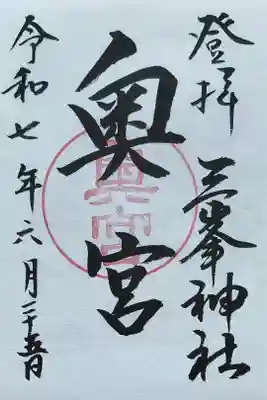 登拝 三峯神社
奥宮
令和七年六月二十五日